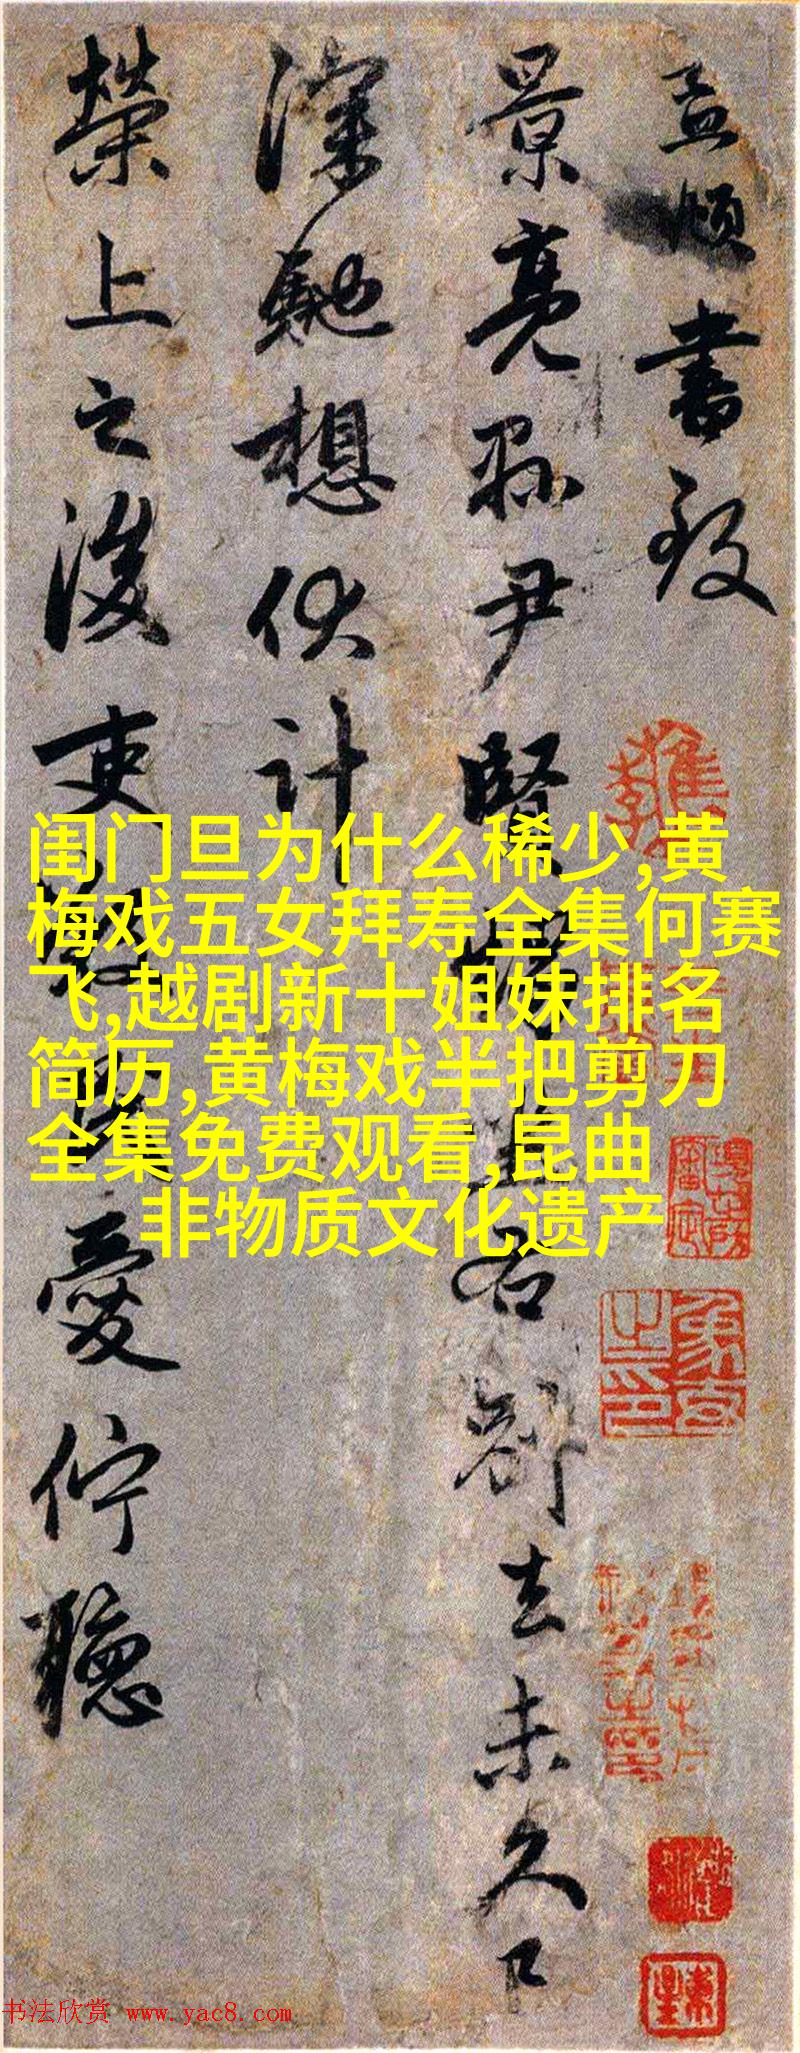 孟頫書致
景亮縣尹賢壻右別去未久
深馳想伏計
榮上之後吏民愛佇聽
闺门旦为什么稀少,黄
梅戏五女拜寿全集何赛
飞,越剧新十姐妹排名
简历,黄梅戏半把剪刀
全集免费观看,昆曲
非物质文化遗产
书法欣赏 www.yac8.com